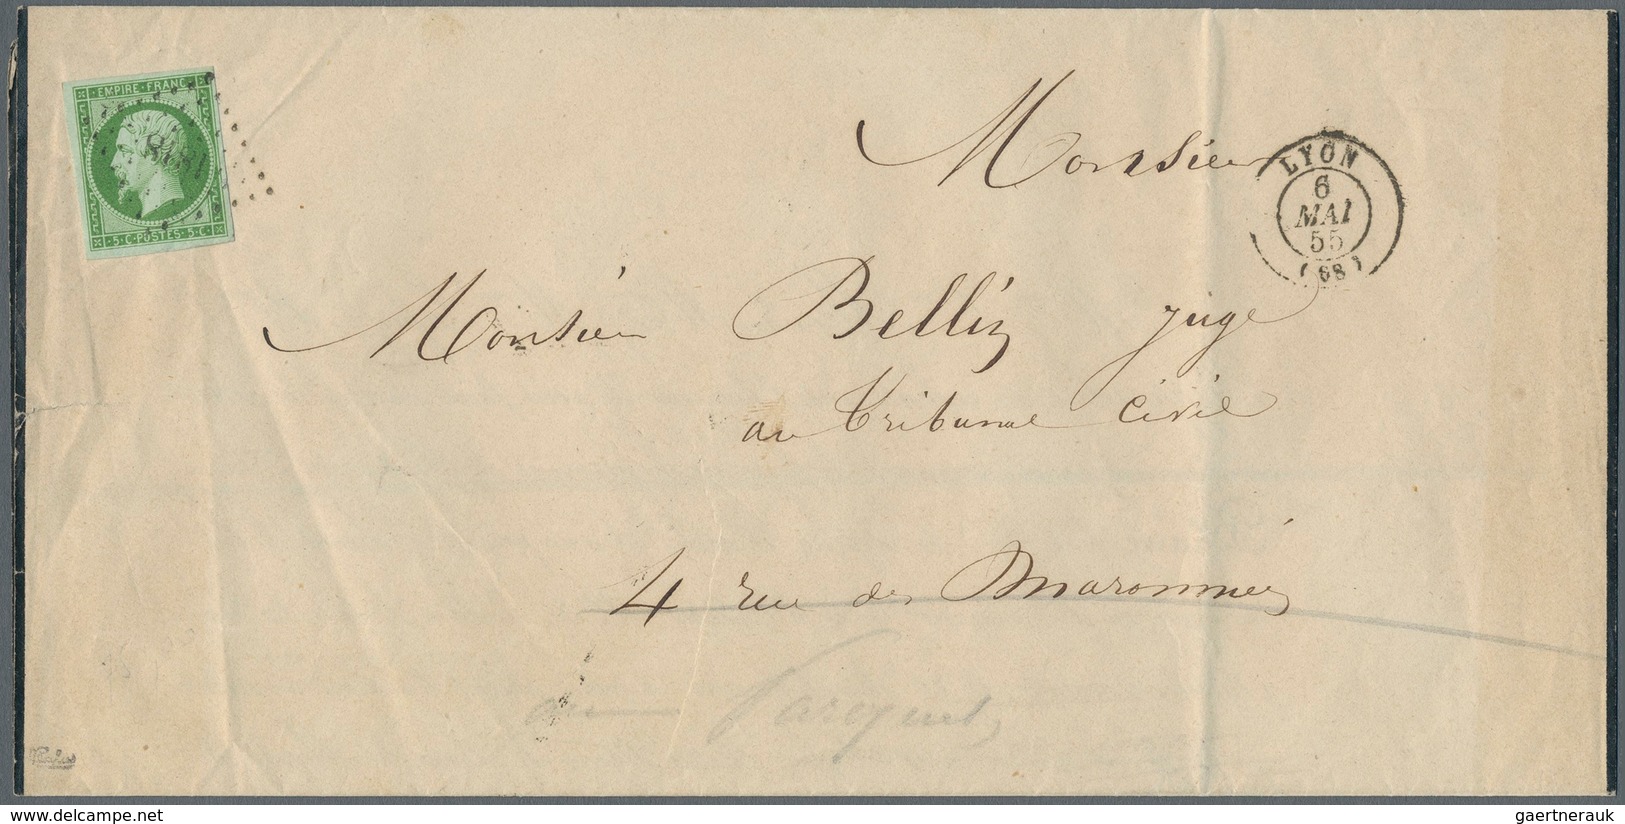 EMPIRE · FRANC
5 · C · POSTES · 5 · C ·
Monsieur
LYON
6
MAI
55
(68)
Monsieur Belliz juge
au Tribunal Civil
4 rue des Maronniers
au Parquet
gaertnerauk